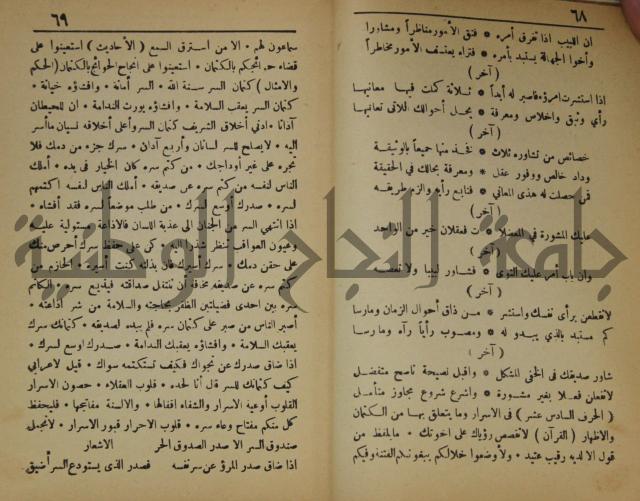 ٦٨
ان اللبيب اذا تفرق أمره * فتق الأمور مناظرا ومشاورا
وأخوا الجهالة يستبد بأمره * فتراه يعتسف الأمور مخاطرا
( آخر )
اذا استشرت امرؤ فاصبر له أبداً * ثلاثة كنت فيها معانيها
رأي وثيق واخلاص ومعرفة * بحمل أحوالك اللاتى تعانيها
( آخر )
خصائص من تشاوره ثلاث * فخذ منها جميعاً بالوثيقة
وداد خالص ووفور عقل * ومعرفة بحالك في الحقيقة
فمن حصلت له هذى المعاني * فتابع رأيه والزم طريقه
( آخر )
عليك المشورة في المعضلات فعقلان خير من الواحد
وان باب أمر عليك التوى * فشاور لبيبا ولا تعصه
( آخر )
لا تقطعن برأى نفسك واستشر * من ذاق أحوال الزمان ومارسا
كم مستبد بالذي يبدو له * ومصوب رأياً رآه ومارسا
( آخر )
شاور صديقك في الخفى المشكل * واقبل نصيحة ناصح متفضل
لا تفعلن فعلا بغير مشورة * واشرع شروع مجاوز متأمل
( الحرف السادس عشر ) فى الاسرار وما يتعلق بها من الكتمان
والاظهار ( القرآن ) لا تقصص رؤياك على اخوتك * ما يلفظ من
قول الا لديه رقيب عتيد * ولأوضعوا خلالكم يبغونكم الفتنة وفيكم
٦٩
سماعون لهم * الا من استرق السمع ( الأحاديث ) استعينوا على
قضاء حوائجكم بالكتمان * استعينوا على انجاح الحوائج بالكتمان ( الحكم
والامثال ) كتمان السر سنة الله * السر أمانة * وافشاؤه خيانة *
كتمان السر يعقب السلامة * وافشاؤه يورث الندامة * ان للحيطان
آذانا * ادنى أخلاق الشريف كتمان السر وأعلى أخلاقه نسيان ما أسر
اليه * لا يصلح للسر لسانان وأربع آذان * سرك جزء من دمك فلا
تجره على غير أوداجك * من كتم سره كان الخيار فى يده * أملك
الناس لنفسه من كتم سره عن صديقه * أملك الناس لنفسه أكتمهم
لسره * صدرك أوسع لسرك * من طلب موضعا لسره فقد أفشاه *
اذا انتهى السر من الجنان الى عذبة اللسان فالاذاعة مستولية عليه *
وعيون العواقب تنظر شذرا اليه * كن على حفظ سرك أحرص منك
على حقن دمك * سرك أسيرك فان بذلته كنت أسيره * الحازم من
كتم سره عن صديقه مخافة أن تنتقل صداقته فيذيع سره * الكاتم
سره بين احدى فضيلتين الظفر بحاجته والسلامة من شر اذاعته *
أصبر الناس من صبر على كتمان سره فلم يبده لصديقه * كتمانك سرك
يعقبك السلامة * وافشاؤه يعقبك الندامة * صدرك اوسع لسرك *
اذا ضاق صدرك عن نجواك فكيف تستكتمه سواك * قيل لاعرابي
كيف كتمانك للسر قال أنا لحده * قلوب العقلاء * حصون الاسرار
القلوب أوعية الاسرار والشفاه اقفالها * والالسنة مفاتحها * فليحفظ
كل منكم مفتاح وعاء سره * قلوب الاحرار قبور الاسرار * لا تجعل
صندوق السر الا صدر الصدوق الحر الاشعار
اذا ضاق صدر المرؤ عن سر نفسه فصدر الذى يستودع السر أضيق
جامعة النجاح الوطنية